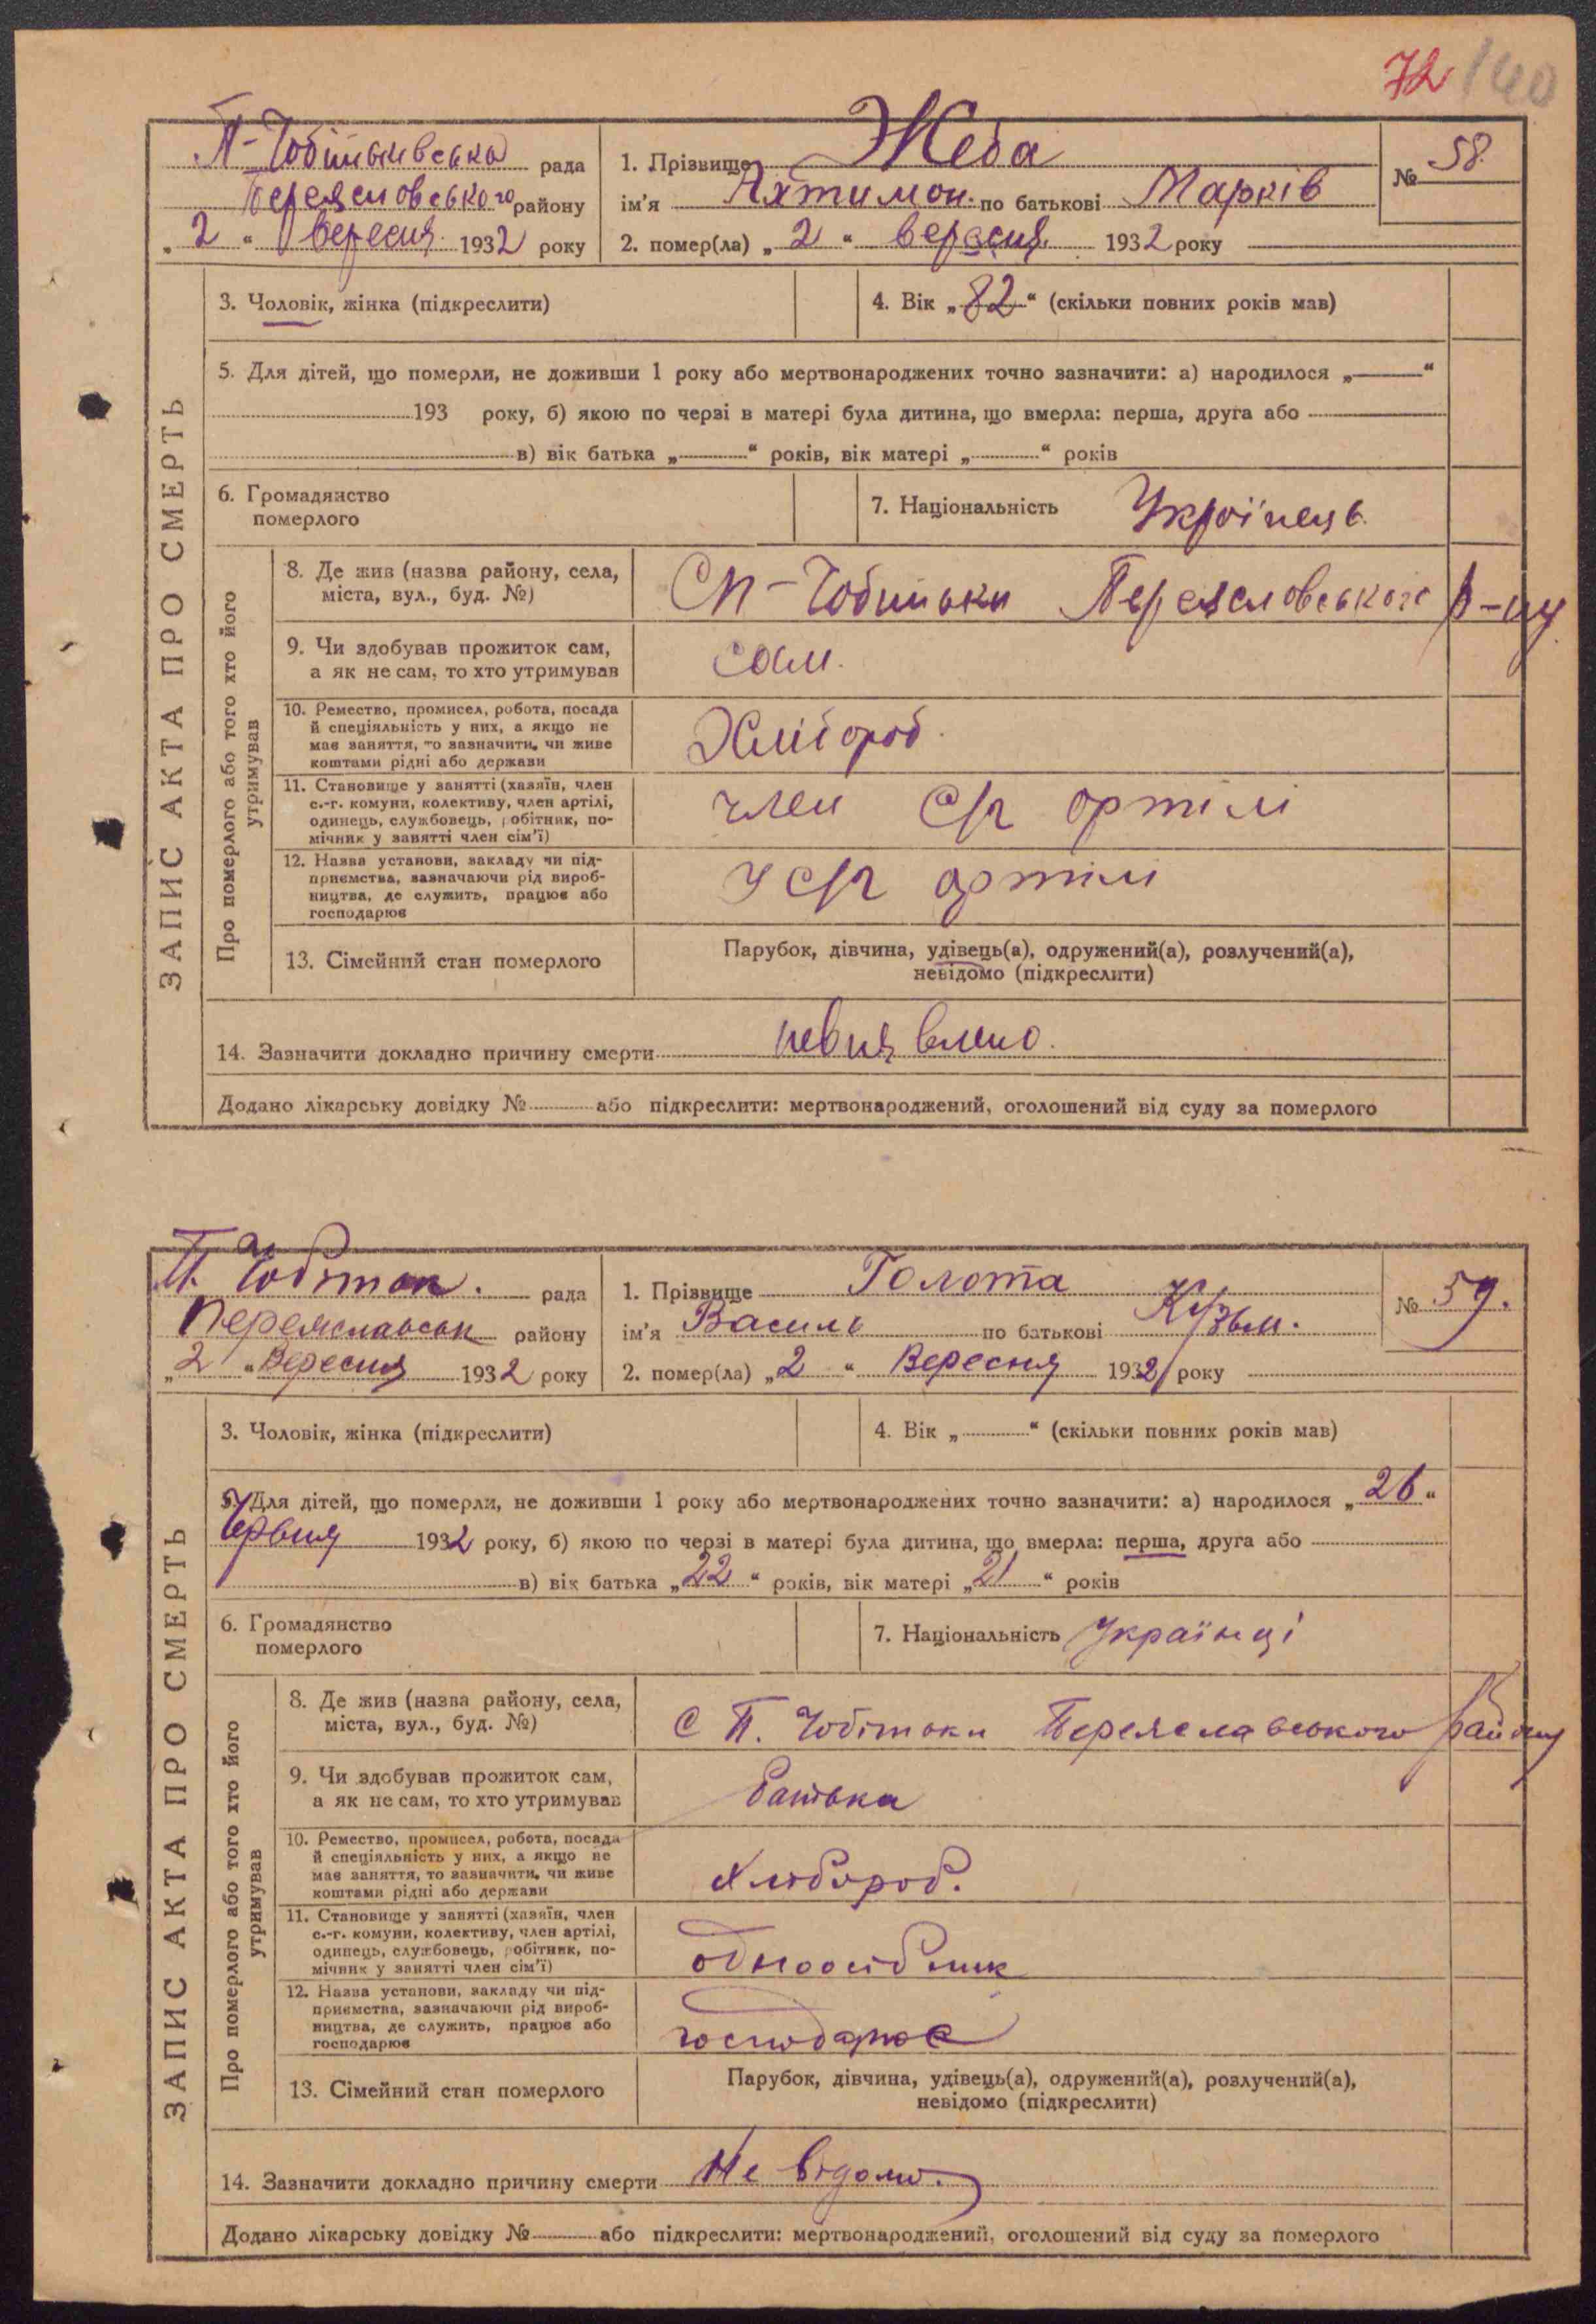 72 140
П-Чобітьківська рада
Переясловського району
„2“ вересня 1932 року
1. Прізвище Жеба
ім'я Яхтимон по батькові Марків
2. помер(ла) „2“ вересня 1932 року
№ 58
ЗАПИС АКТА ПРО СМЕРТЬ
3. Чоловік, жінка (підкреслити)
4. Вік „82“ (скільки повних років мав)
5. Для дітей, що померли, не доживши 1 року або мертвонароджених точно зазначити: а) народилося „ “
193 року, б) якою по черзі в матері була дитина, що вмерла: перша, друга або
в) вік батька „ “ років, вік матері „ “ років
6. Громадянство
померлого
7. Національність Українець
Про померлого або того хто його
утримував
8. Де жив (назва району, села,
міста, вул., буд. №)
С П-Чобітьки Переясловського р-ну
9. Чи здобував прожиток сам,
а як не сам, то хто утримував
сам.
10. Ремество, промисел, робота, посада
й спеціяльність у них, а якщо не
має заняття, то зазначити, чи живе
коштами рідні або держави
Хлібороб
11. Становище у занятті (хазяїн, член
с.-г. комуни, колективу, член артілі,
одинець, службовець, робітник, по-
мічник у занятті член сім'ї)
член с/г артілі
12. Назва установи, закладу чи під-
приємства, зазначаючи рід вироб-
ництва, де служить, працює або
господарює
у с/г артілі
13. Сімейний стан померлого
Парубок, дівчина, удівець(а), одружений(а), розлучений(а),
невідомо (підкреслити)
14. Зазначити докладно причину смерти невиявлено.
Додано лікарську довідку № або підкреслити: мертвонароджений, оголошений від суду за померлого
П. Чобіток. рада
Переяславськ району
„2“ Вересня 1932 року
1. Прізвище Голота
ім'я Василь по батькові Кузьм.
2. помер(ла) „2“ Вересня 1932 року
№ 59.
ЗАПИС АКТА ПРО СМЕРТЬ
3. Чоловік, жінка (підкреслити)
4. Вік „ “ (скільки повних років мав)
5. Для дітей, що померли, не доживши 1 року або мертвонароджених точно зазначити: а) народилося „26“
Червня 1932 року, б) якою по черзі в матері була дитина, що вмерла: перша, друга або
в) вік батька „22“ років, вік матері „21“ років
6. Громадянство
померлого
7. Національність Українці
Про померлого або того хто його
утримував
8. Де жив (назва району, села,
міста, вул., буд. №)
С П. Чобітьки Переяславського району
9. Чи здобував прожиток сам,
а як не сам, то хто утримував
батька
10. Ремество, промисел, робота, посада
й спеціяльність у них, а якщо не
має заняття, то зазначити, чи живе
коштами рідні або держави
Хлібороб.
11. Становище у занятті (хазяїн, член
с.-г. комуни, колективу, член артілі,
одинець, службовець, робітник, по-
мічник у занятті член сім'ї)
одноосібник
12. Назва установи, закладу чи під-
приємства, зазначаючи рід вироб-
ництва, де служить, працює або
господарює
господарює
13. Сімейний стан померлого
Парубок, дівчина, удівець(а), одружений(а), розлучений(а),
невідомо (підкреслити)
14. Зазначити докладно причину смерти Не відомо.
Додано лікарську довідку № або підкреслити: мертвонароджений, оголошений від суду за померлого